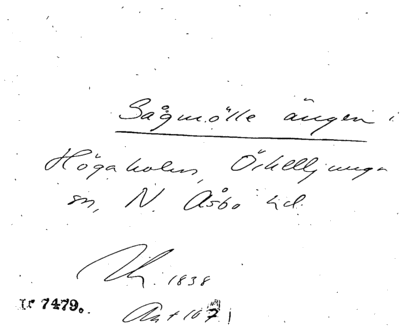 Sågmölle ängen i
Högaholm, Örkelljunga
sn, N. Åsbo hd.
1838
nr 7479.
Ant 1671